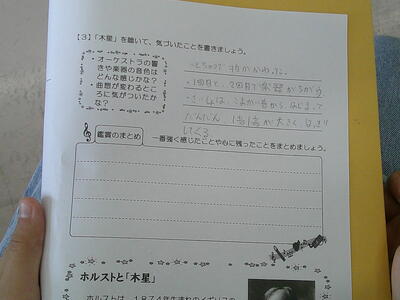 【3】「木星」を聴いて、気づいたことを書きましょう。
・オーケストラの響
きや楽器の音色は
どんな感じかな?
・曲想が変わるとこ
ろに気がついたか
な?
・とちゅうで
・1回目と、2回目で楽器がちがう
・さいしょは、こまかい音から、はじまって
だんだん、1音1音が大きく
してくる
鑑賞のまとめ
一番強く感じたことや心に残ったことをまとめましょう。
ホルストと「木星」
ホルストは、1874年生まれのイギリスの